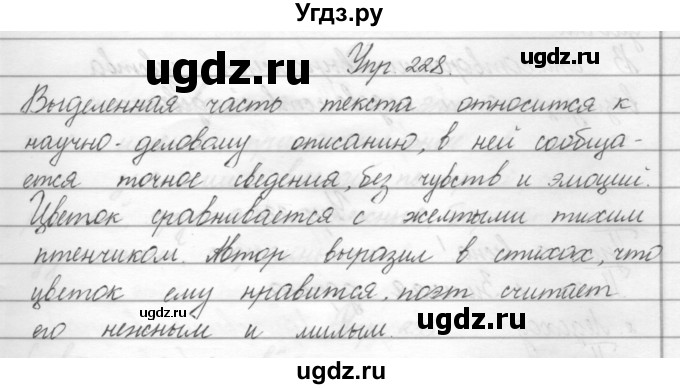 Угдз.ру
ugdz.ru
Упр. 228.
Выделенная часть текста относится к
научно-деловому описанию, в ней сообща-
ется точное сведения, без чувств и эмоций.
Цветок сравнивается с желтыми тихим
птенчиком. Автор выразил в стихах, что
цветок ему нравится. поэт считает
его нежным и милым.
ugdz.ru
ugdz.ru